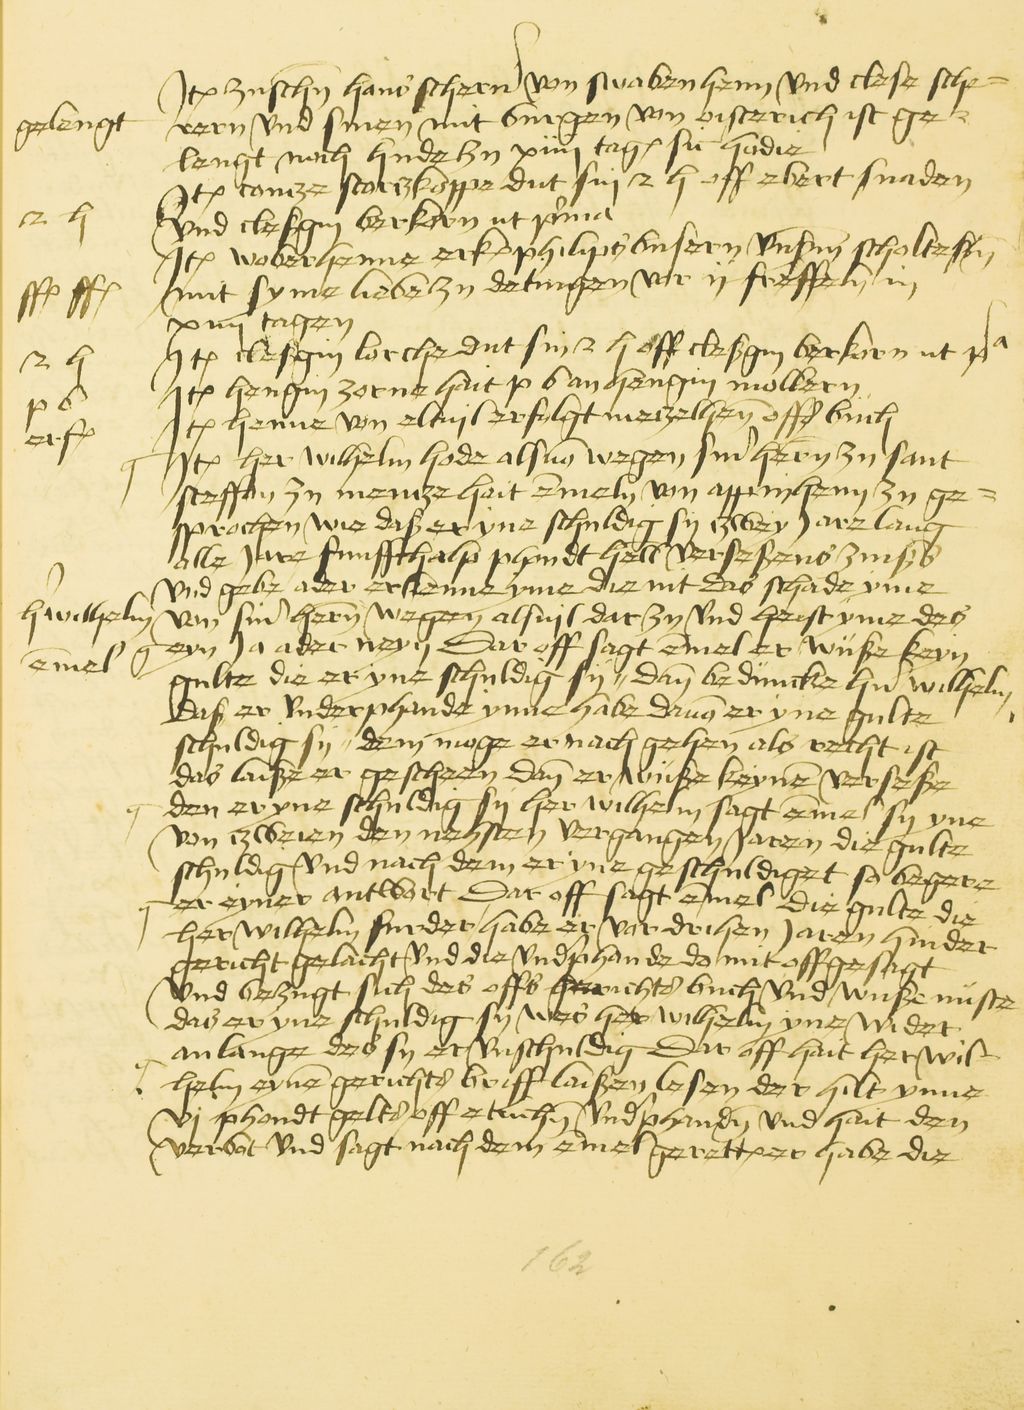 Itꝫ zuschn hans schern von swabenheim vnd clese sche=
gelengt
rern vnd sinen mit burgen von oisterich ist ge=
lengt noch hude zu xiiij tagꝫ sic hodie
Itꝫ contze storczkoppe dut sin 2 h off ebert snaden
2 h
vnd clesgin berkorn ut prima
Itꝫ woberhenne erkꝫ philips busern vnserm scholtessen
ffꝫ ffꝫ
mit syme liebe zu detingen vor ij freffeln in
xiiij tagen
2 h
Itꝫ clesgin lorche dut sin 2 h off clesgin berkorn ut pa
p b
Itꝫ hengin zorne hait p b an hengin mollern
erfꝫ
Itꝫ henne von eltuil erfolgt metzelhen offs buch
Itꝫ her wilhelm hode als von wegen siner hern zu sant
steffan zu mentze hait emeln von appinheim zu ge=
sprochen wie daß er yne schuldig sy zwey Jare lang
alle Jare funffthalp phondt hell verseßens zinßs
vnd gebe ader erkenne yme die nit das schade yme
h wilhelm
von siner hern wegen alsuil dar zu vnd heist yme des
emel
eyn Ja ader neyn Dar off sagt emel er wuße keyn
gulte die er yne schuldig sy dan beduncke hern wilhelm
daß er vnderphande ynne habe dauon er yne gulte
schuldig sy dem moge er nach gehen als recht ist
das laiße er gescheen dan er wuße keynen verseße
den er yne schuldig sy her wilhelm sagt emel sy yne
von zweien den nehsten vergangen Jaren die gulte
schuldig vnd nach dem er yne geschuldiget so begere
er eyner antwort Dar off sagt emel die gulte die
her wilhelm furder habe er vor drihen Jaren hinder
gericht gelacht vnd die vndphande do mit offgesagt
vnd bezugt sich des offs gerichts buch vnd wuße nuste
das er yne schuldig sy wes her wilhelm yne wider
anlange des sy er vnschuldig Dar off hait her wil=
helm eynen gerichts briff laißen lesen der hilt ynne
vj phondt gelts off etlichen vndphanden vnd hait den
verbot vnd sagt nach dem emel gerett er habe die
162